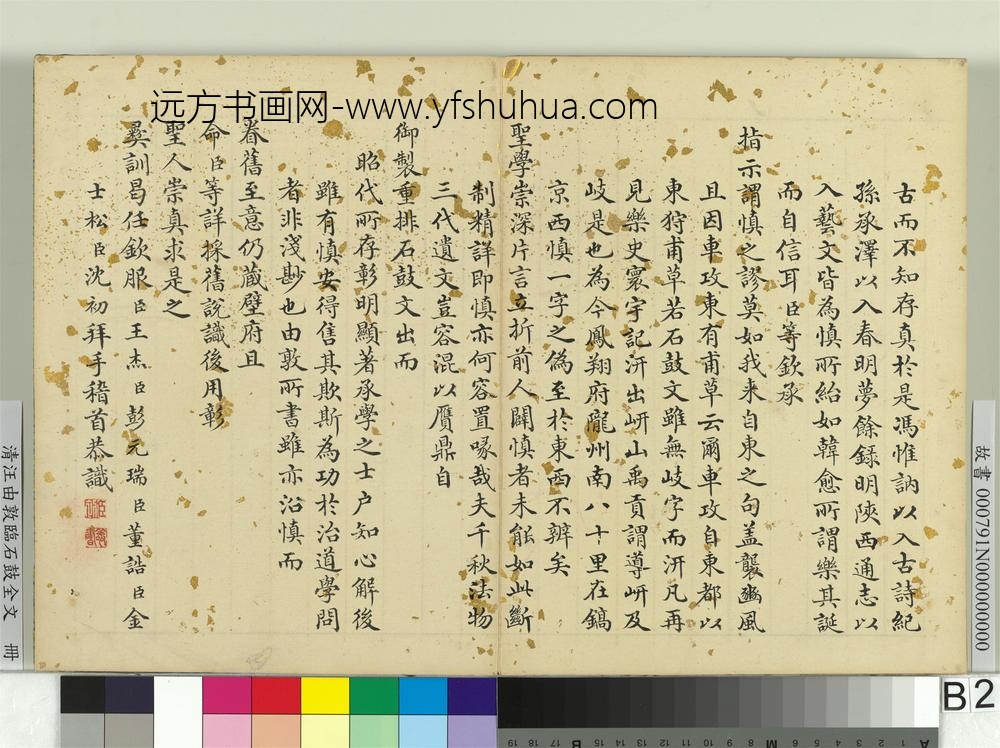 远方书画网-www.yfshuhua.com
古而不知存真於是馮惟訥以入古詩紀
孫承澤以入春明夢餘錄明陝西通志以
入藝文皆為慎所紿如韓愈所謂樂其誕
而自信耳臣等欽承
指示謂慎之謬莫如我来自東之句盖襲豳風
且因車攻東有甫草云爾車攻自東都以
東狩甫草若石鼓文雖無岐字而汧凡再
見樂史寰宇記汧出岍山禹貢謂導岍及
岐是也為今鳳翔府隴州南八十里在鎬
京西慎一字之偽至於東西不辨矣
聖學崇深片言立折前人闢慎者未能如此斷
制精詳即慎亦何容置喙哉夫千秋法物
三代遺文豈容混以贋鼎自
御製重排石鼓文出而
昭代所存彰明顯著承學之士户知心解後
雖有慎安得售其欺斯為功於治道學問
者非淺尠也由敦所書雖亦沿慎而
眷舊至意仍蔵壁府且
命臣等詳採舊說識後用彰
聖人崇真求是之
彛訓曷任欽服臣王杰臣彭元瑞臣董誥臣金
士松臣沈初拜手稽首恭識
清汪由敦臨石鼓全文 冊
故書 000791N000000000
B 2